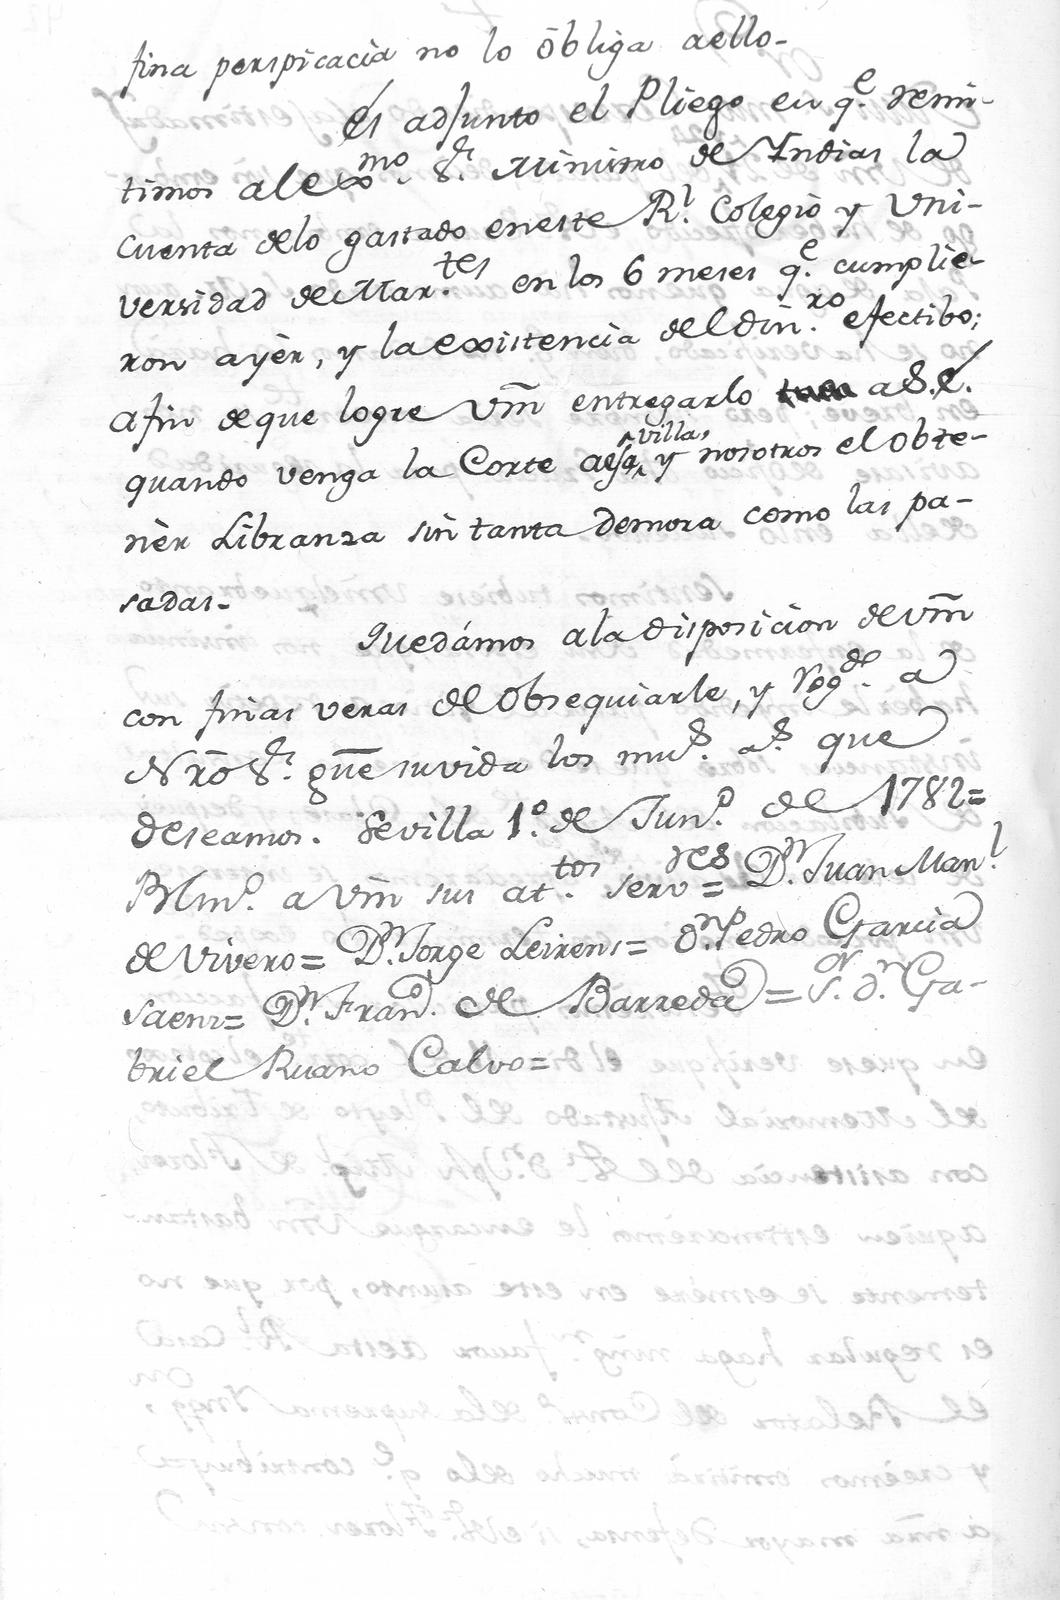 fina perspicacia no lo obliga aello-
Es adjunto el Pliego en q.e remi-
timos al exmo. Sr. Ministro de Indias la
cuenta delo gastado eneste Rl. Colegio y Uni-
versidad de Mar.tes en los 6 meses q.e cumplie-
ron ayèr, y la existencia del din.ro efectibo;
afin de que logre Vm̃ entregarlo a S.E.
quando venga la Corte aesa villa, y nosotros el obte-
nèr Libranza sin tanta demora como las pa-
sadas.
Quedámos ala disposicion de Vm̃
con finas veras de Obsequiarle, y rog.de a
Nrõ Sr. gũe su vida los mu.s a.s que
deseamos. Sevilla 1.º de Jun.o de 1782=
BlM.o a Vm̃ sus at.tos serv.res = D.n Juan Man.l
de Vivero= D.n Jorge Leirens= d.n Pedro Garcia
Saenz= D.n Fran.co de Barreda = S.or d.n Ga-
briel Ruano Calvo=